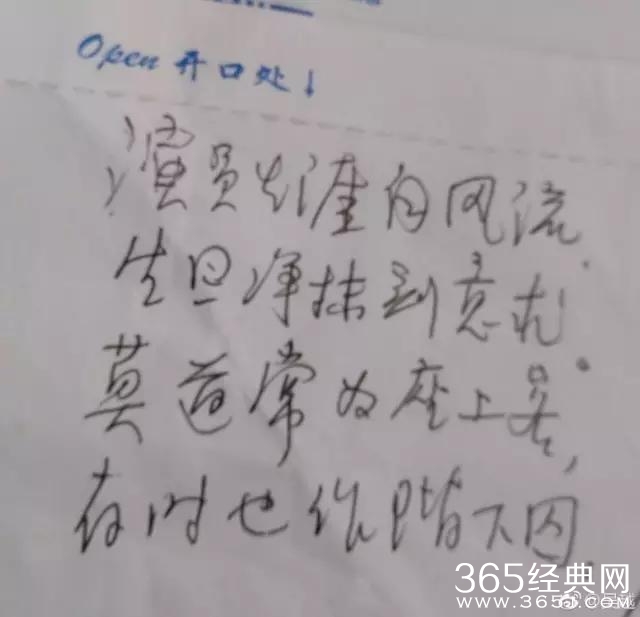 Open 开口处↓
演员生涯自风流,
生旦净抹刻意求。
莫道常为座上客,
有时也作阶下囚
365经典网
www.365